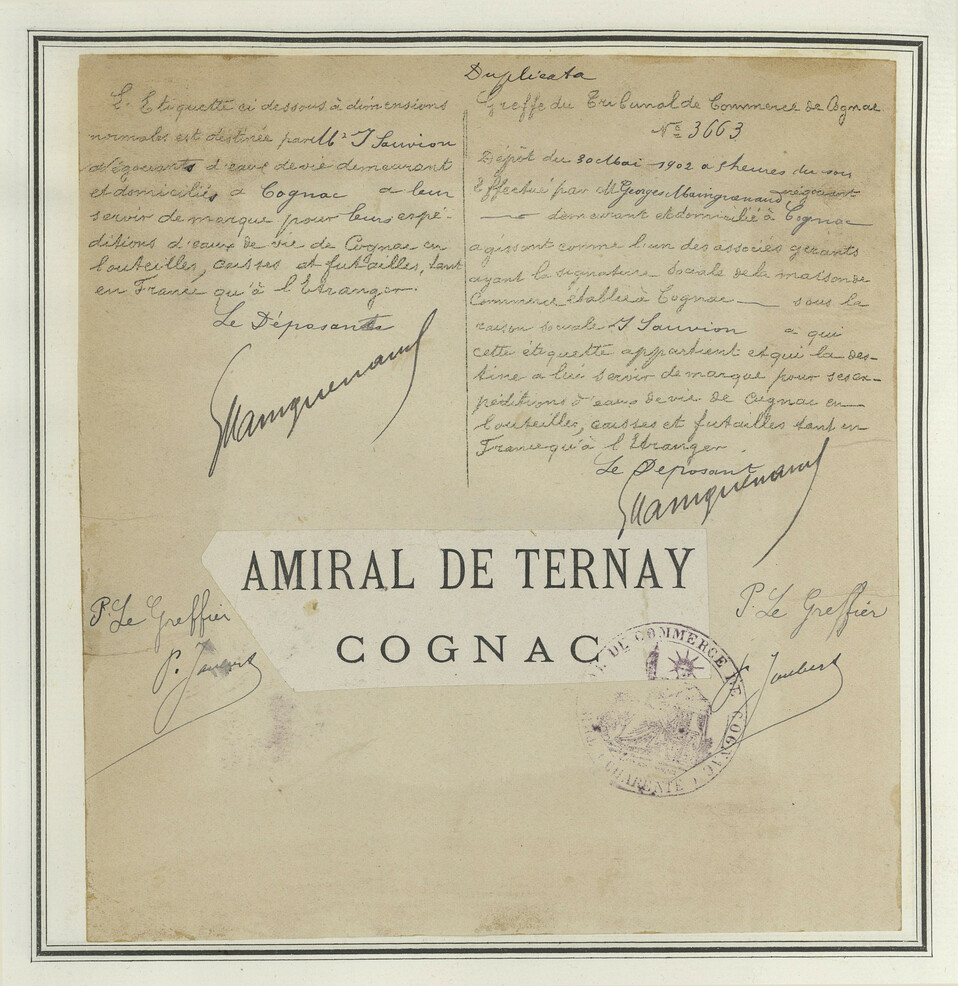 L'Etiquette ci dessous à dimensions
normales est destinée par Mrs J Sauvion
Négociants d'eaux de vie demeurant
et domiciliés à Cognac à leur
servir de marque pour leurs expé-
ditions d'eaux de vie de Cognac en
bouteilles, caisses et futailles, tant
en France qu'à l'Etranger.
Le Déposant
GMainguenaud
Duplicata
Greffe du Tribunal de Commerce de Cognac
No 3663
Dépôt du 30 Mai 1902 à 5 heures du soir
Effectué par M Georges Maingueneaud négociant
demeurant et domicilié à Cognac
agissant comme l'un des associés gérants
ayant la signature sociale de la maison de
Commerce établie à Cognac — sous la
raison sociale J Sauvion à qui
cette étiquette appartient et qui la des-
tine à lui servir de marque pour ses ex-
péditions d'eaux de vie de Cognac en
bouteilles, caisses et futailles tant en
France qu'à l'Etranger.
Le Déposant
GMainguenaud
AMIRAL DE TERNAY
COGNAC
P. Le Greffier
P. Le Greffier
Joubert
DE COMMERCE DE COGNAC
CHARENTE